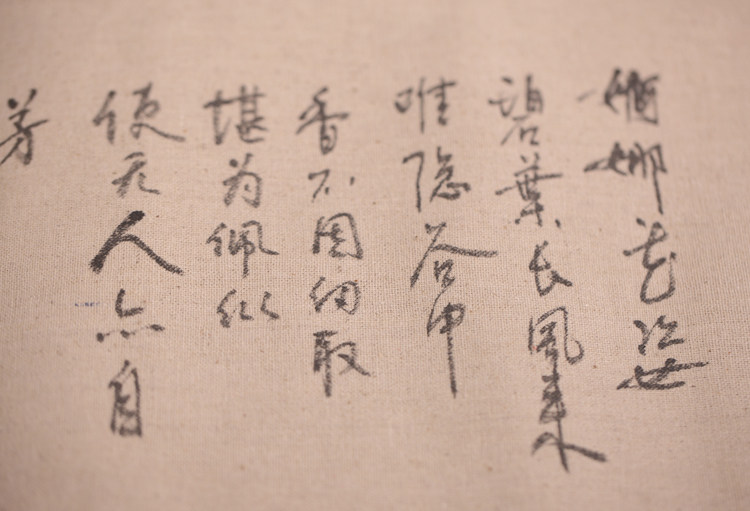 婀娜花姿
碧葉长風来
难隐谷中
香不因纫取
堪为佩纵
使无人亦自
芳